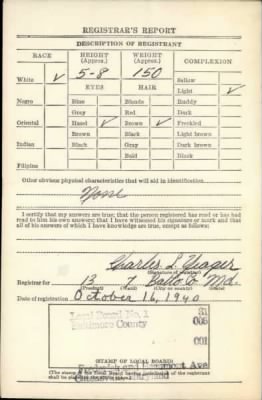 REGISTRAR'S REPORT
DESCRIPTION OF REGISTRANT
RACE HEIGHT (Approx.) WEIGHT (Approx.) COMPLEXION
White ✓ 5-8 150 Sallow
EYES HAIR Light ✓
Negro Blue Blonde Ruddy
Gray Red Dark
Oriental Hazel ✓ Brown ✓ Freckled
Brown Black Light brown
Indian Black Gray Dark brown
Bald Black
Filipino
Other obvious physical characteristics that will aid in identification
None
I certify that my answers are true; that the person registered has read or has had
read to him his own answers; that I have witnessed his signature or mark and that
all of his answers of which I have knowledge are true, except as follows:
Charles L. Yeager
(Signature of registrar)
Registrar for 13 7 Balto. Co Md.
(Precinct) (Ward) (City or county) (State)
Date of registration October 16, 1940
Local Board No. 1 31
Baltimore County 005
001
(STAMP OF LOCAL BOARD)
Ave
(The stamp of the Local Board having jurisdiction of the registrant
shall be